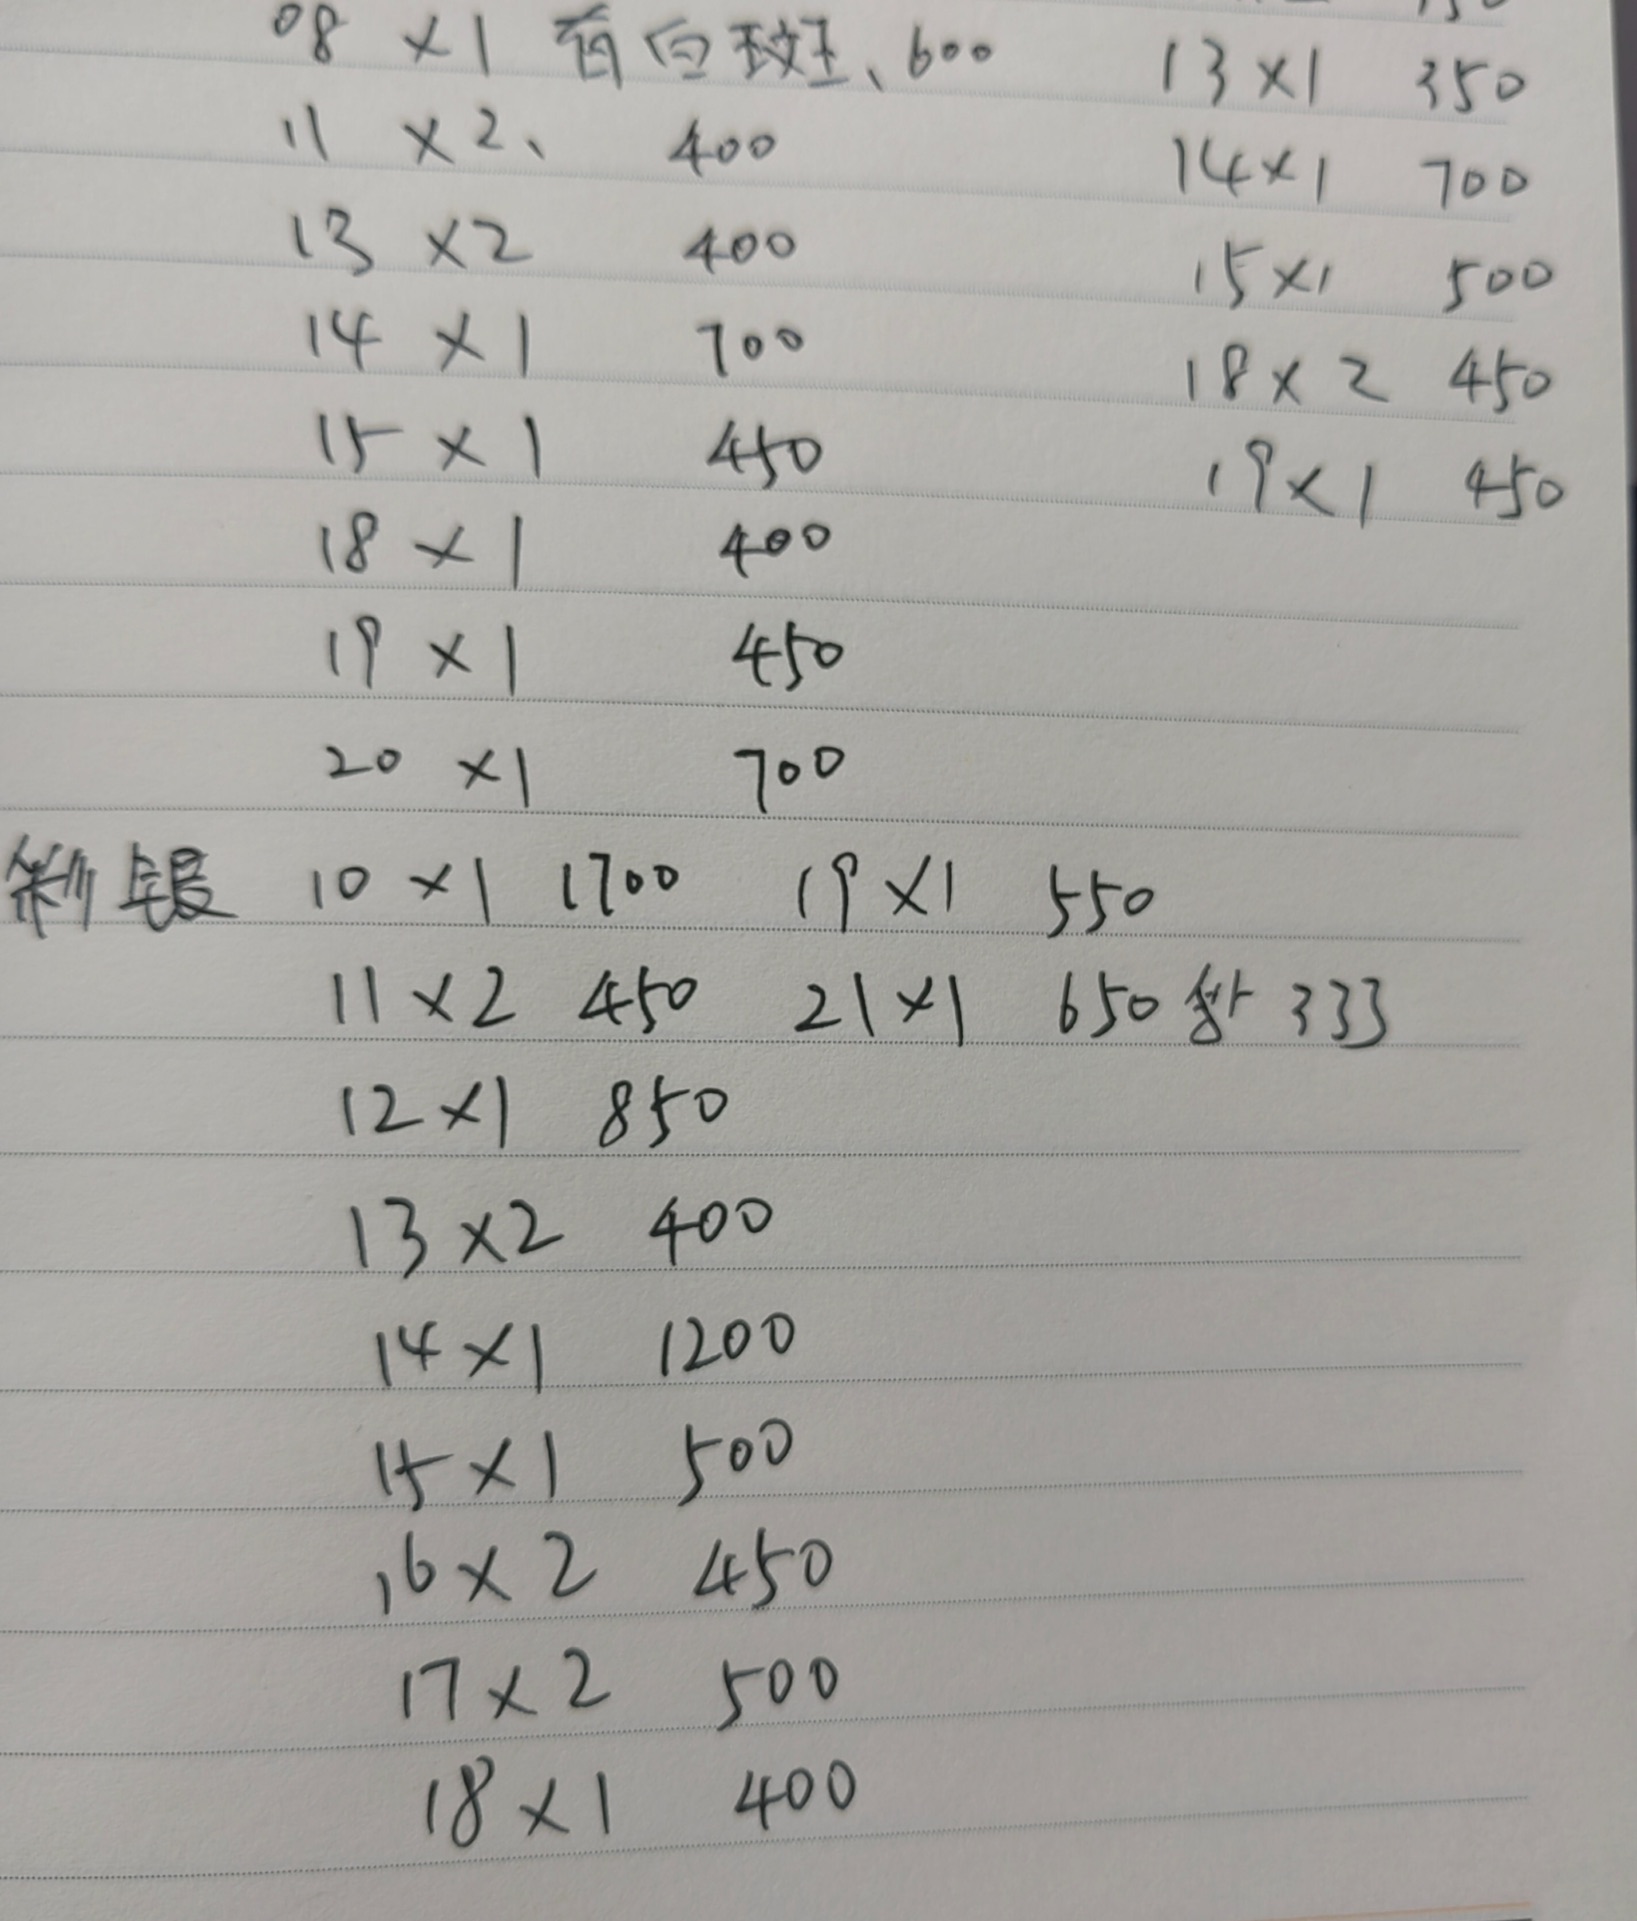 08 ×1 有白斑、600
11 ×2、 400
13 ×2 400
14 ×1 700
15 ×1 450
18 ×1 400
19 ×1 450
20 ×1 700
13×1 350
14×1 700
15×1 500
18×2 450
19×1 450
银 10×1 1700 19×1 550
11×2 450 21×1 650 333
12×1 850
13×2 400
14×1 1200
15×1 500
16×2 450
17×2 500
18×1 400